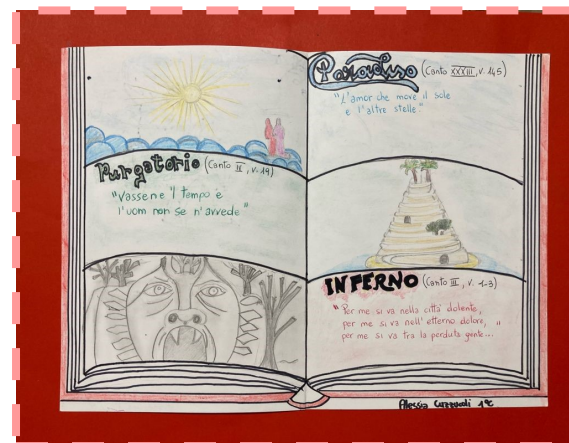 Paradiso (Canto XXXIII, v. 145)
"L'amor che move il sole
e l'altre stelle."
Purgatorio (Canto II, v. 19)
"Vassene 'l tempo e
l'uom non se n'avvede"
INFERNO (Canto III, v. 1-3)
"Per me si va nella città dolente,
per me si va nell'etterno dolore,
per me si va tra la perduta gente..."
Alessia 1°C